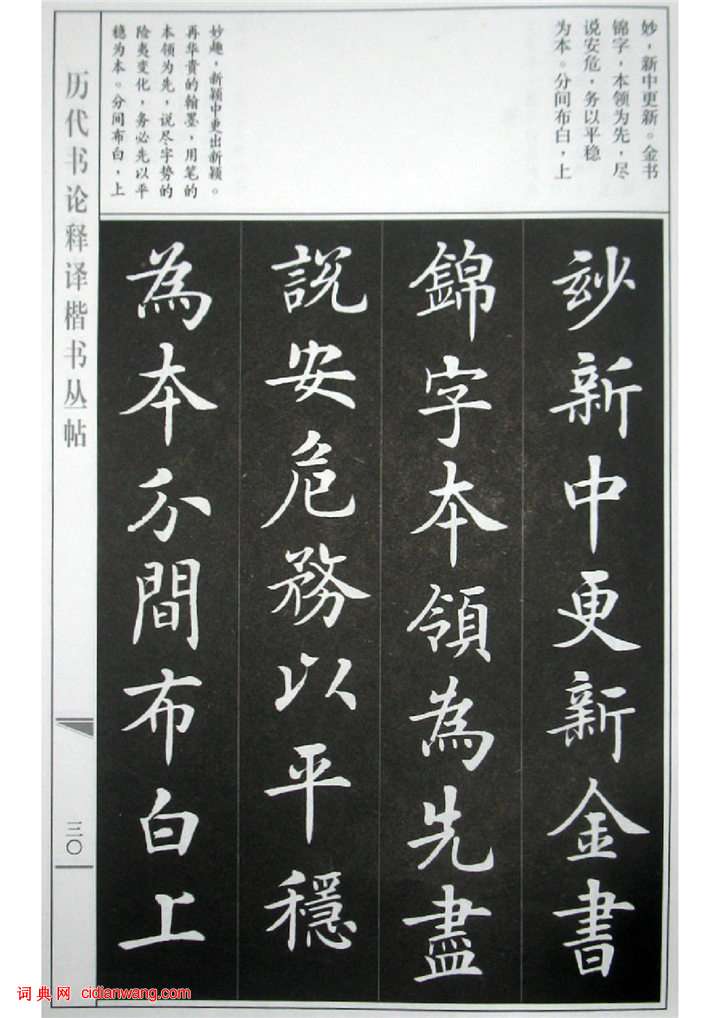 妙，新中更新。金书
锦字，本领为先，尽
说安危，务以平稳
为本。分间布白，上
妙趣，新颖中更出新颖。
再华贵的翰墨，用笔的
本领为先，说尽字势的
险夷变化，务必先以平
稳为本。分间布白，上
玅新中更新金書
錦字本領為先盡
説安危務以平穩
為本分間布白上
历代书论释译楷书丛帖
三〇
词典网 cidianwang.com